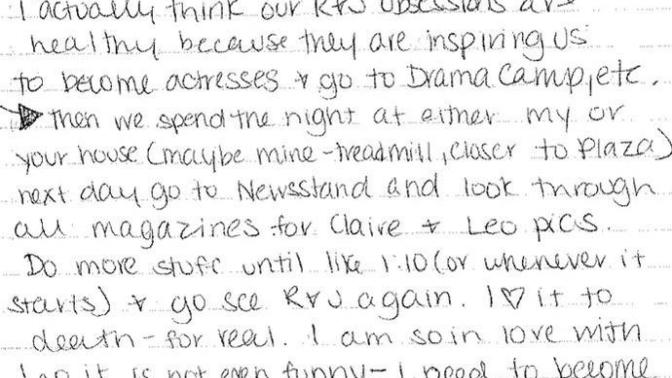 I actually think our R+J obsessions are
healthy because they are inspiring us
to become actresses + go to Drama Camp, etc.
then we spend the night at either my or
your house (maybe mine - treadmill, closer to Plaza)
next day go to Newsstand and look through
all magazines for Claire + Leo pics.
Do more stuff until like 1:10 (or whenever it
starts) + go see R+J again. I ♡ it to
death - for real. I am so in love with
Leo it is not even funny - I need to become